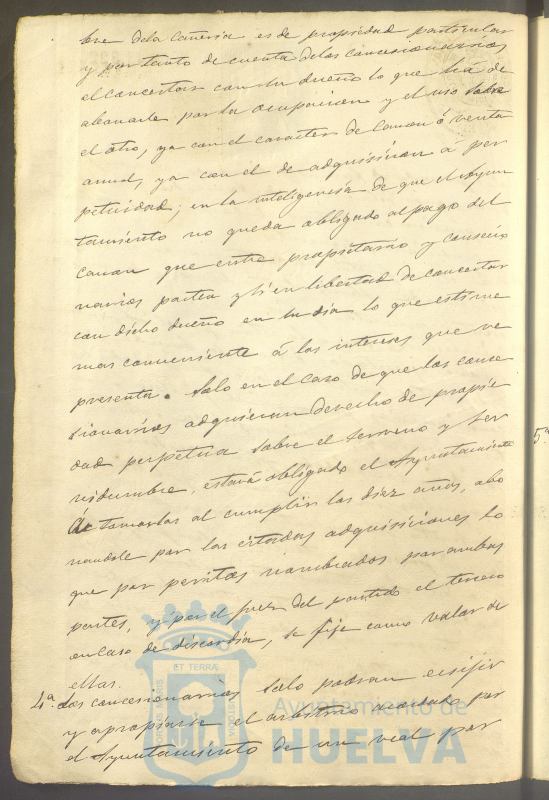 bre de la Cañeria es de propiedad particular
y por tanto de cuenta delos concesionarios
el concertar con su dueño lo que há de
abonarle por la ocupacion y el uso sobre
el otro, ya con el caracter de Canon ó renta
anual, ya con el de adquisicion á per
petuidad; en la inteligencia de que el Ayun
tamiento no queda obligado al pago del
canon que entre propietario y concecio
narios pacten y sí en libertad de concertar
con dicho dueño en su dia lo que estime
mas conveniente á los intereses que re
presenta. Solo en el caso de que los conce
sionarios adquieran derecho de propie
dad perpetua sobre el terreno y ser
vidumbre, estará obligado el Ayuntamiento
á tomarlas al cumplir los diez años, abo
nandole por las citadas adquisiciones lo
que por peritos nombrados por ambas
partes, y por el juez del partido el tercero
en caso de discordia, se fije como valor de
ellas.
4ª. Los concesionarios solo podran ecsijir
y apropiarse el arbitrio votado por
el Ayuntamiento de un real por
5ª
ET TERRÆ
Ayuntamiento de
HUELVA